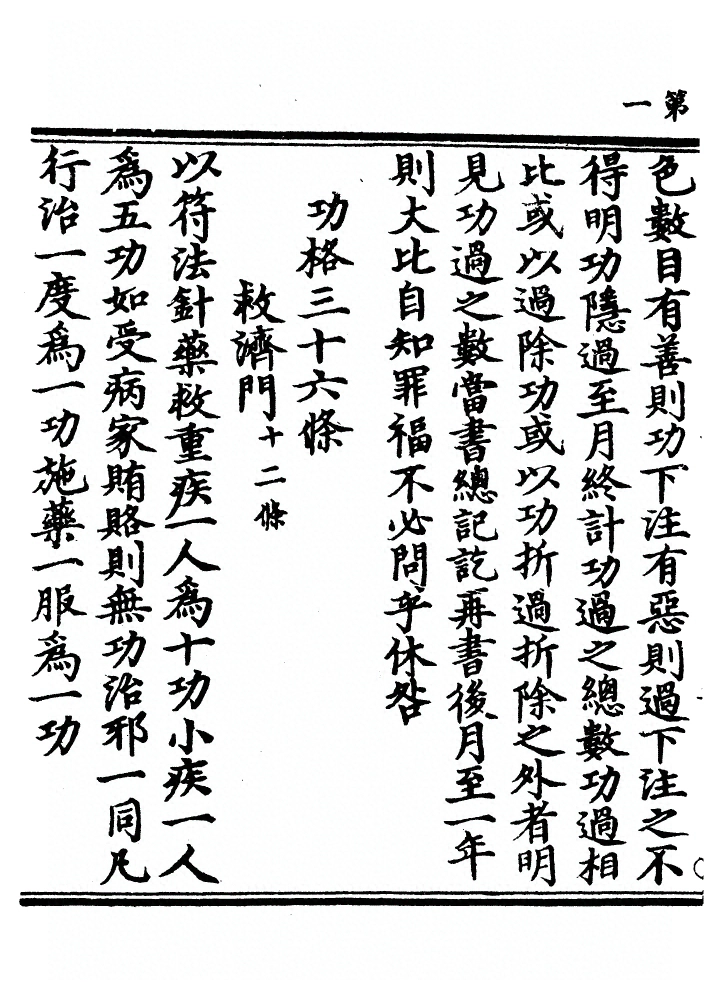 第一
色數目有善則功下注有惡則過下注之不
得明功隱過至月終計功過之總數功過相
比或以過除功或以功折過折除之外者明
見功過之數當書總記訖再書後月至一年
則大比自知罪福不必問乎休咎
功格三十六條
救濟門十二條
以符法針藥救重疾一人爲十功小疾一人
爲五功如受病家賄賂則無功治邪一同凡
行治一度爲一功施藥一服爲一功